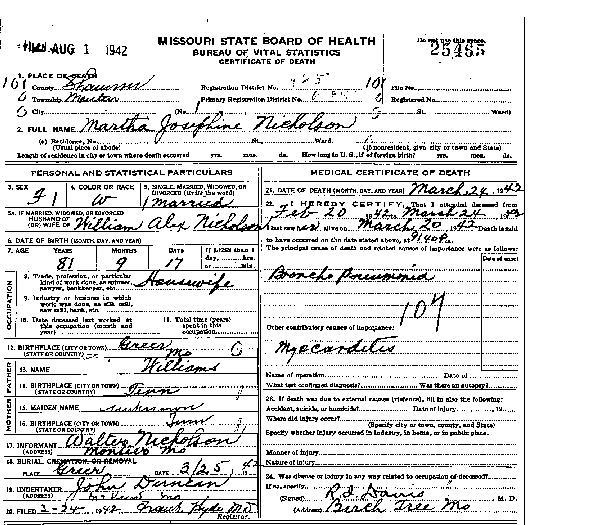 FILED AUG 1 1942
MISSOURI STATE BOARD OF HEALTH
BUREAU OF VITAL STATISTICS
CERTIFICATE OF DEATH
Do not use this space.
25485
1. PLACE OF DEATH
County Shannon Registration District No. File No.
Township Montier Primary Registration District No. Registered No.
City (No. St. Ward)
2. FULL NAME Martha Josephine Nicholson
(a) Residence, No. St. Ward.
(Usual place of abode) (If nonresident, give city or town and State)
Length of residence in city or town where death occurred yrs. mos. ds. How long in U. S., if of foreign birth? yrs. mos. ds.
PERSONAL AND STATISTICAL PARTICULARS
3. SEX 4. COLOR OR RACE 5. SINGLE, MARRIED, WIDOWED, OR DIVORCED (write the word)
F W Married
5A. IF MARRIED, WIDOWED, OR DIVORCED
HUSBAND OF
(OR) WIFE OF William Alex Nicholson
6. DATE OF BIRTH (MONTH, DAY, AND YEAR)
7. AGE YEARS MONTHS DAYS If LESS than 1 day, hrs. or min.
81 9 17
OCCUPATION
8. Trade, profession, or particular kind of work done, as spinner, sawyer, bookkeeper, etc. Housewife
9. Industry or business in which work was done, as silk mill, saw mill, bank, etc.
10. Date deceased last worked at this occupation (month and year)
11. Total time (years) spent in this occupation
12. BIRTHPLACE (CITY OR TOWN) Greer
(STATE OR COUNTRY) Mo
FATHER
13. NAME Williams
14. BIRTHPLACE (CITY OR TOWN)
(STATE OR COUNTRY) Tenn
MOTHER
15. MAIDEN NAME unknown
16. BIRTHPLACE (CITY OR TOWN)
(STATE OR COUNTRY) Tenn
17. INFORMANT Walter Nicholson
(ADDRESS) Montier Mo
18. BURIAL, CREMATION, OR REMOVAL
PLACE Greer DATE 3/25, 1942
19. UNDERTAKER John Duncan
(ADDRESS) Mo
20. FILED 3-24- 1942 Frank Hyde MD
Registrar.
MEDICAL CERTIFICATE OF DEATH
21. DATE OF DEATH (MONTH, DAY, AND YEAR) March 24, 1942
22. I HEREBY CERTIFY, That I attended deceased from
Feb 20 1942, March 24 1942
I last saw her alive on March 20 1942 Death is said
to have occurred on the date stated above, at 9:40 P.m.
The principal cause of death and related causes of importance were as follows:
Date of onset
Broncho Pneumonia
107
Other contributory causes of importance:
Myocarditis
Name of operation Date of
What test confirmed diagnosis? Was there an autopsy?
23. If death was due to external causes (violence), fill in also the following:
Accident, suicide, or homicide? Date of injury , 19
Where did injury occur?
(Specify city or town, county, and State)
Specify whether injury occurred in industry, in home, or in public place.
Manner of injury
Nature of injury
24. Was disease or injury in any way related to occupation of deceased?
If so, specify
(Signed) R. S. Davis M. D.
(Address) Birch Tree Mo